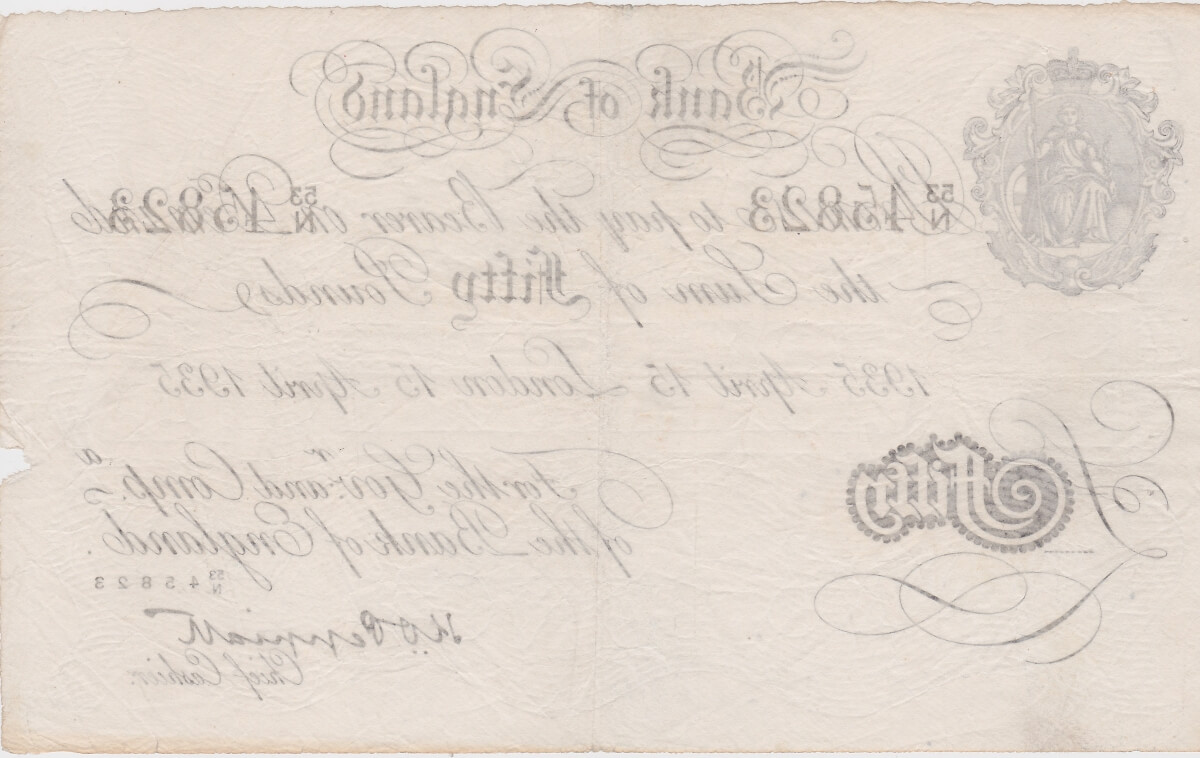 Bank of England
53/N 45823 to pay the Bearer on 53/N 45823
the Sum of Fifty Pounds
1935 April 15 London 15 April 1935
For the Gov.r and Comp.a
of the Bank of England.
53/N 45823
K O Peppiatt
Chief Cashier.
£ Fifty